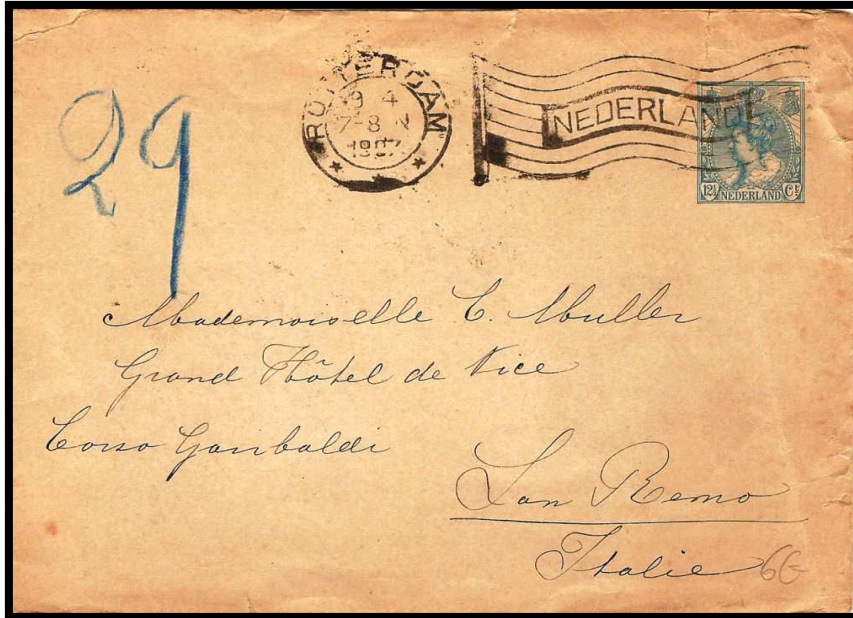 29
ROTTERDAM
9 4
7-8 N
1907
NEDERLAND
12½ NEDERLAND Ct
Mademoiselle C. Muller
Grand Hôtel de Nice
Corso Garibaldi
San Remo
Italie